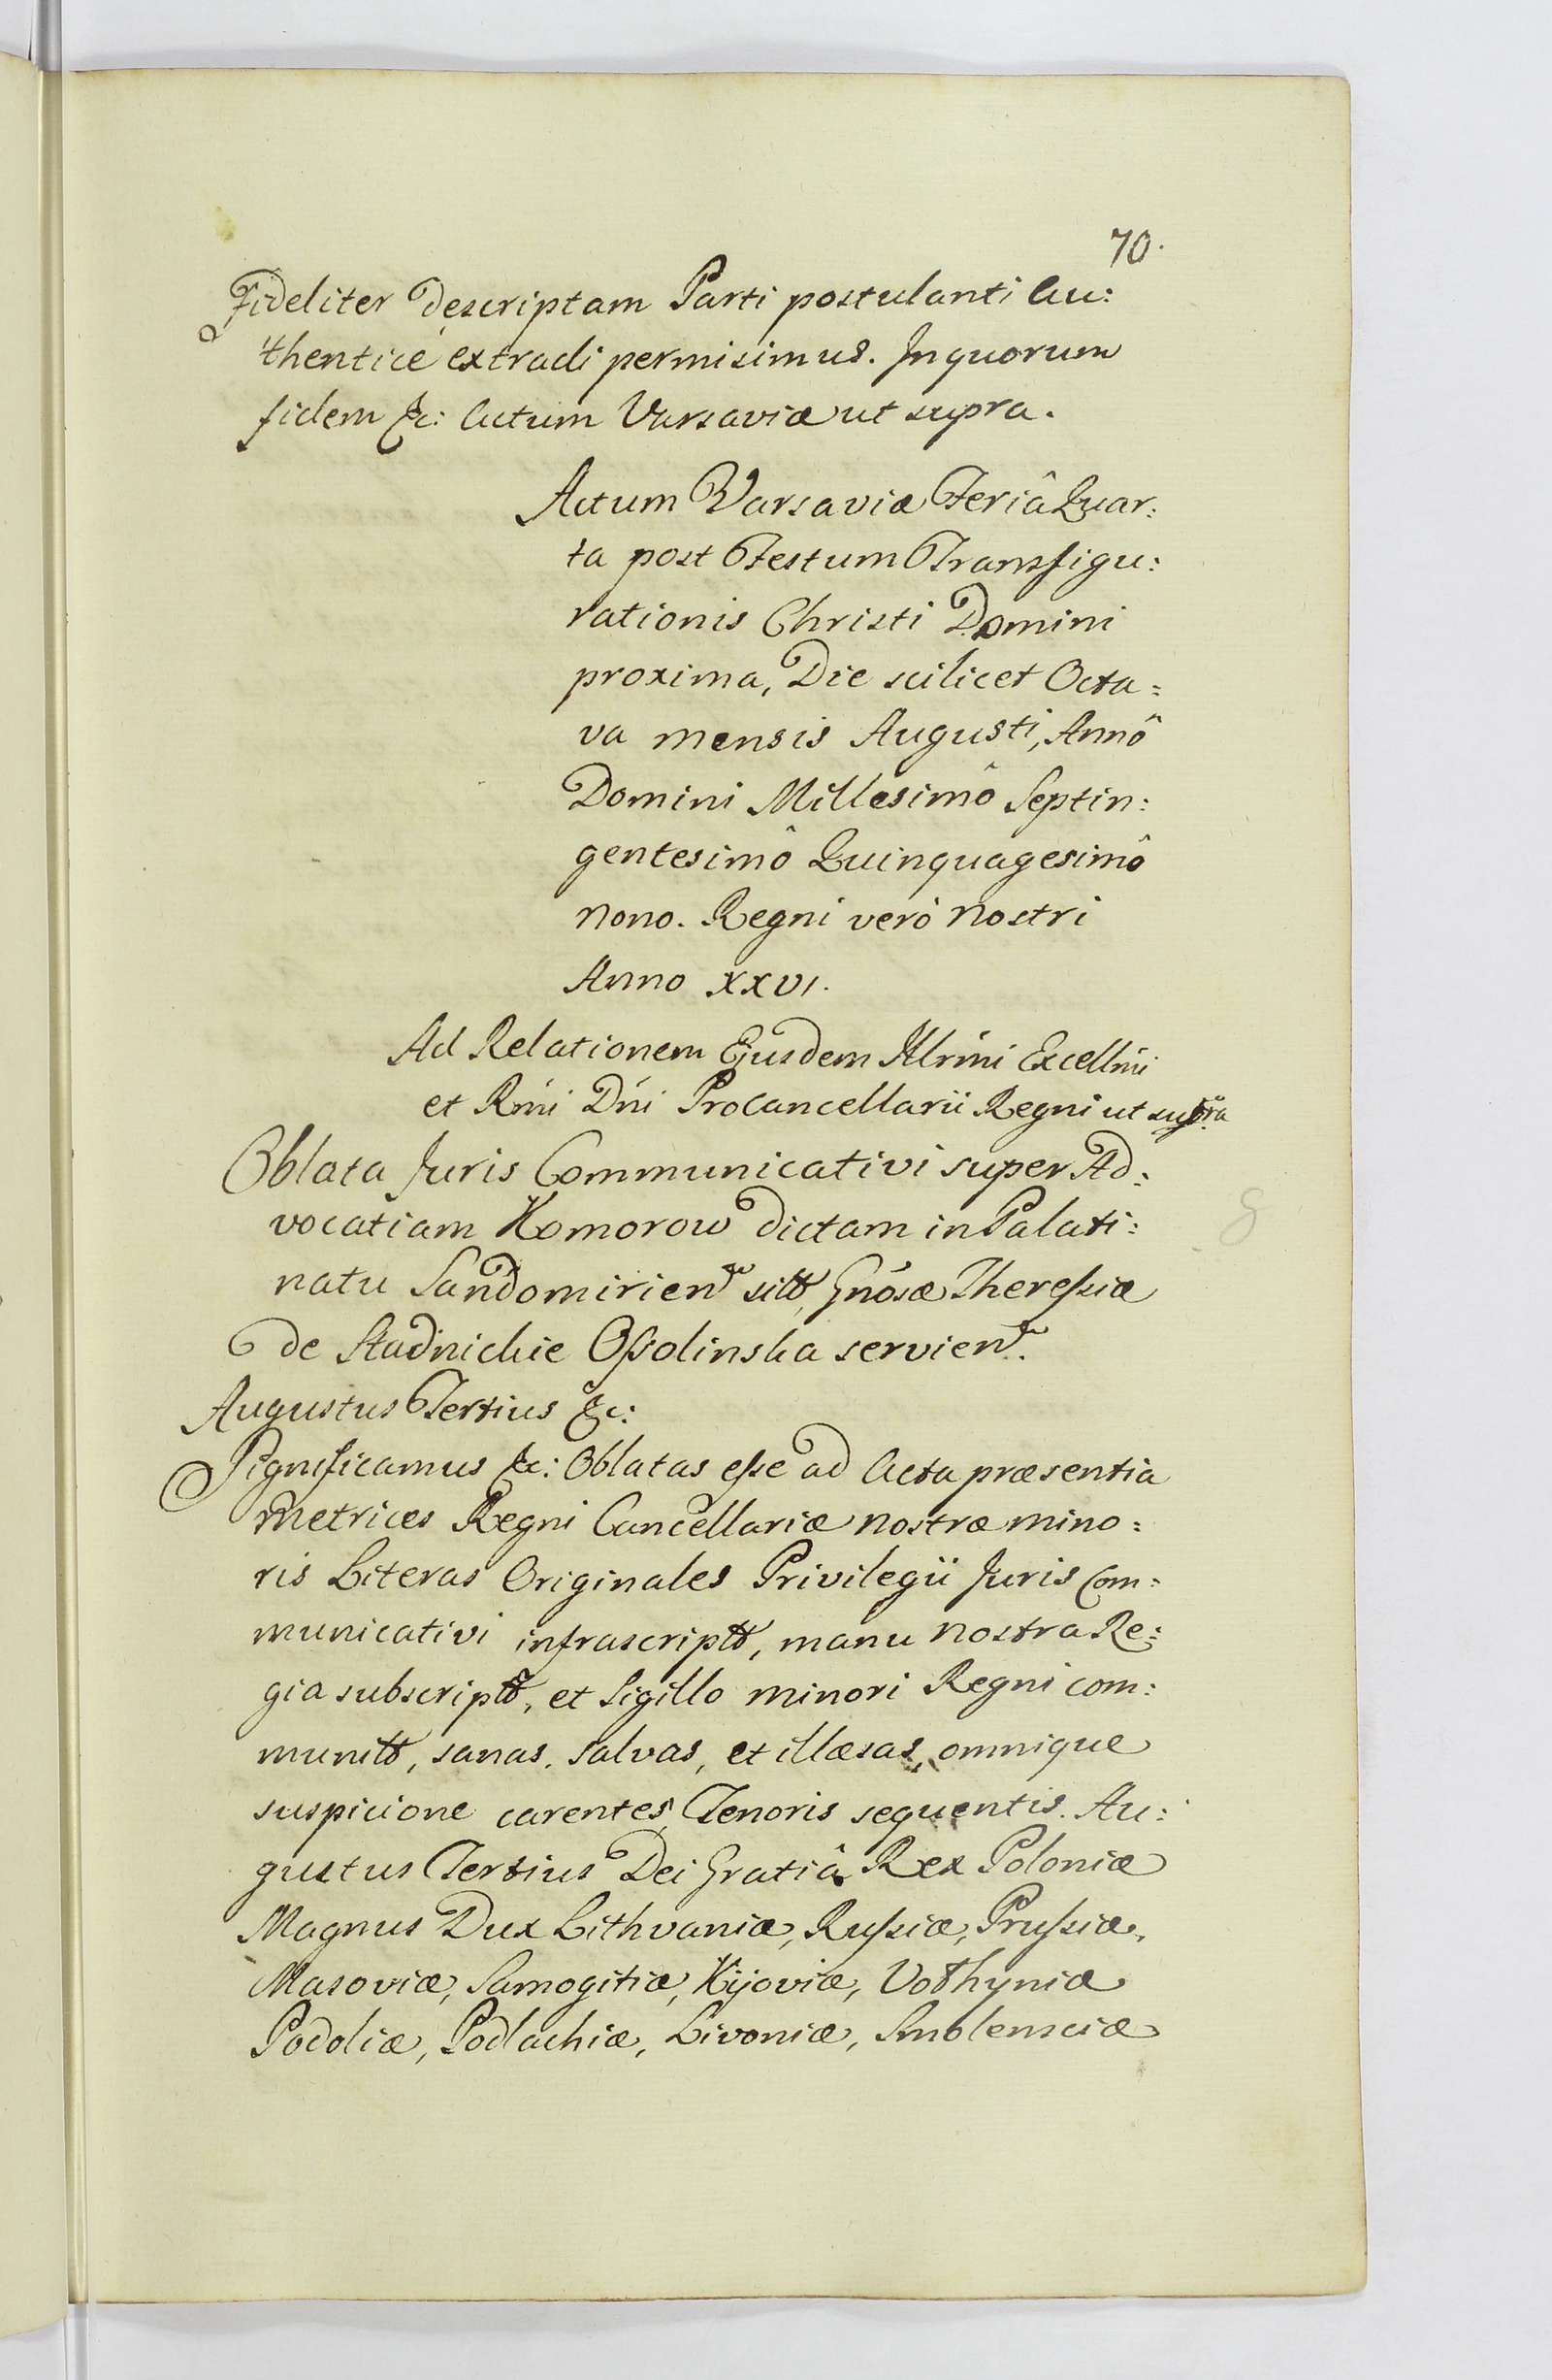 70.
Fideliter descriptam Parti postulanti au:
thenticè extradi permisimus. In quorum
fidem &c: Actum Varsaviæ ut supra.
Actum Varsaviæ Feriâ Quar:
ta post Festum Transfigu:
rationis Christi Domini
proxima, Die scilicet Octa=
va mensis Augusti, Annô
Domini Millesimô Septin:
gentesimô Quinquagesimô
nono. Regni verò nostri
Anno XXVI.
Ad Relationem Ejusdem Illrmi Excellmi
et Rmi Dni Procancellarii Regni ut supra
Oblata Juris Communicativi super Ad:
vocatiam Komorow dictam in Palati:
natu Sandomirien sitt, Gnosæ Theresſiæ
de Stadnickie Oſsolinska servien.
Augustus Tertius &c:
Significamus &c: Oblatas eſse ad Acta præsentia
Metrices Regni Cancellariæ nostræ mino=
ris Literas Originales Privilegii Juris Com=
municativi infrascriptt, manu nostra Re=
gia subscriptt, et Sigillo minori Regni com:
munitt, sanas, salvas, et illæsas, omnique
suspicione carentes, Tenoris sequentis. Au:
gustus Tertius Dei Gratiâ Rex Poloniæ
Magnus Dux Lithvaniæ, Ruſsiæ, Pruſsiæ,
Masoviæ, Samogitiæ, Kijoviæ, Volhyniæ
Podoliæ, Podlachiæ, Livoniæ, Smolensciæ
8